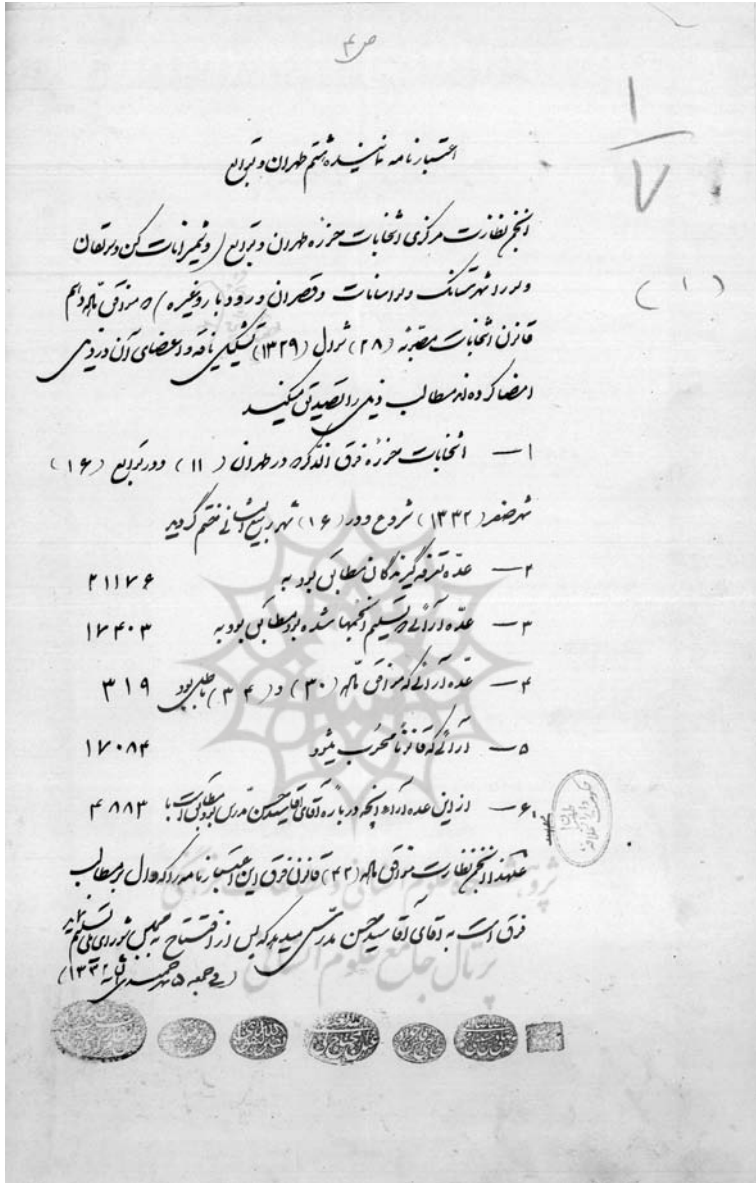 ص ۴
۱
۷
اعتبارنامه نماینده هشتم طهران و توابع
انجمن نظارت مرکزی انتخابات حوزه طهران و توابع (و شمیرانات کن و سولقان
و لورا و شهرستانک و لواسانات و قصران و رودبار و غیره) که موافق ماده دهم
(۱)
قانون انتخابات مصوبه (۲۸) شوال (۱۳۲۹) تشکیل یافته و اعضای آن در ذیل
امضا کرده‌اند مطالب ذیل را تصدیق میکنند
۱ — انتخابات حوزه فوق‌الذکر در طهران (۱۱) و در توابع (۱۶)
شهر صفر (۱۳۳۲) شروع و در (۱۶) شهر ربیع الثانی ختم گردید
۲ — عده تعرفه گیرندگان مطابق بود به ۲۱۱۷۶
۳ — عده آرائی که تسلیم انجمنها شده بود مطابق بود به ۱۷۴۰۳
۴ — عده آرائی که موافق ماده (۳۰) و (۳۴) باطل بود ۳۱۹
۵ — آرائی که قانوناً محسوب میشود ۱۷۰۸۴
۶ — از این عده آراء آنچه درباره آقای آقا سید حسن مدرس بود مطابق است با ۴۸۸۳
علیهذا انجمن نظارت موافق ماده (۴۲) قانون فوق این اعتبارنامه را که دال بر مطالب
فوق است به آقای آقا سید حسن مدرس میدهد که پس از افتتاح به مجلس شورای ملی تسلیم نماید
(فی جمعه ۵ شهر جمادی الثانیه ۱۳۳۲)
پژوهشگاه علوم انسانی و مطالعات فرهنگی
پرتال جامع علوم انسانی